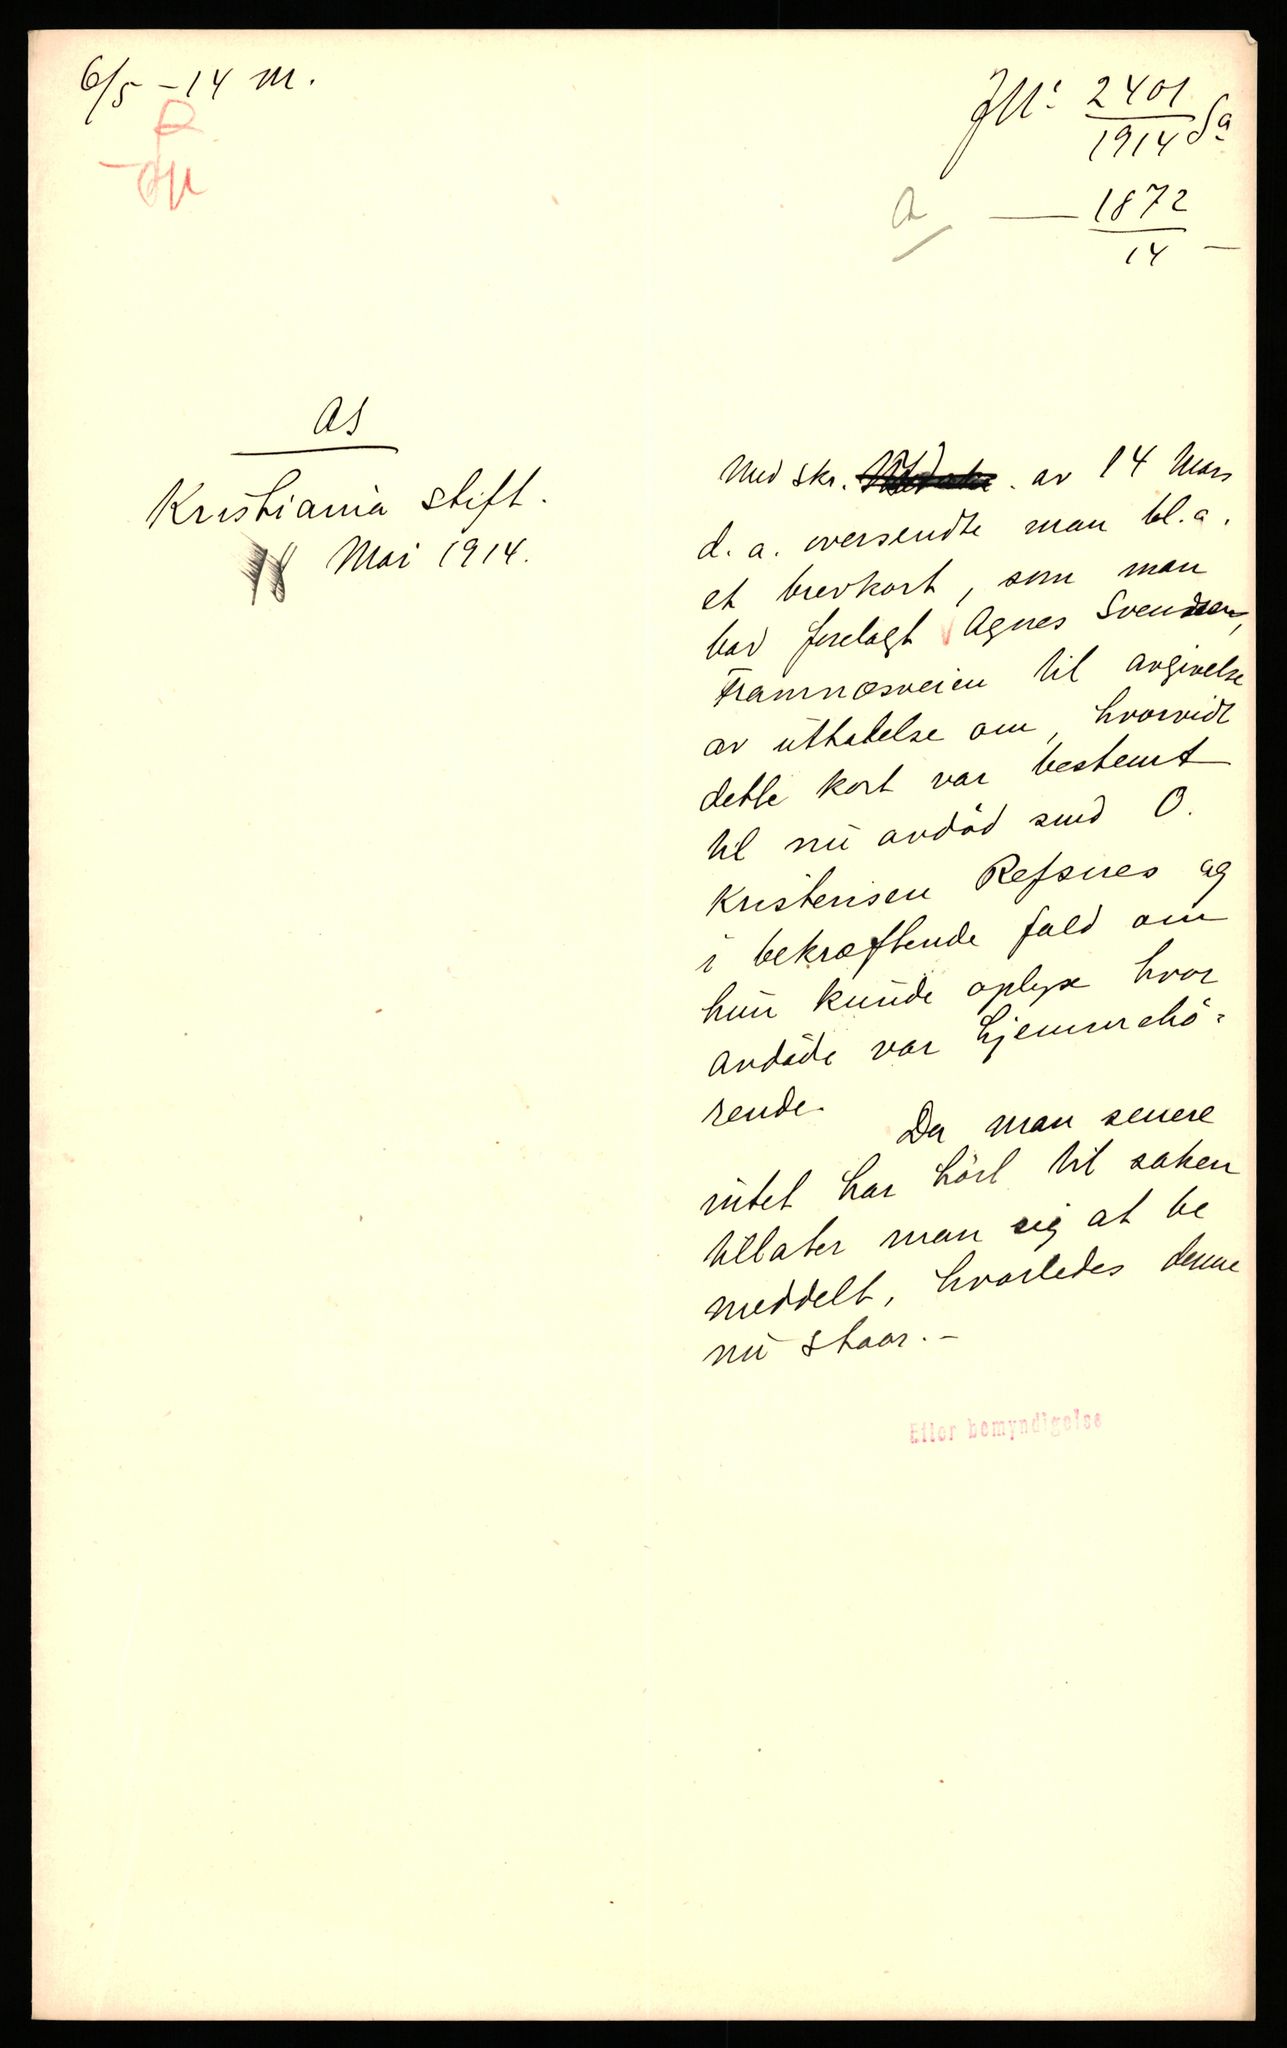 6/5 - 14 M.
JNr: 2401
1914 Sa
— 1872
14 —
AS
Kristiania stift.
18 Mai 1914.
Med skr. av 14 Mars
d. a. oversendte man bl. a.
et brevkort, som man
bad forelagt Agnes Svendsen,
Framnæsveien til avgivelse
av uttalelse om, hvorvidt
dette kort var bestemt
til nu avdød smd O.
Kristensen Refsnes og
i bekræftende fald om
hun kunde oplyse hvor
avdøde var hjemmehø-
rende.
Da man senere
intet har hørt til saken
tillater man sig at be
meddelt, hvorledes denne
nu staar. -
Efter bemyndigelse